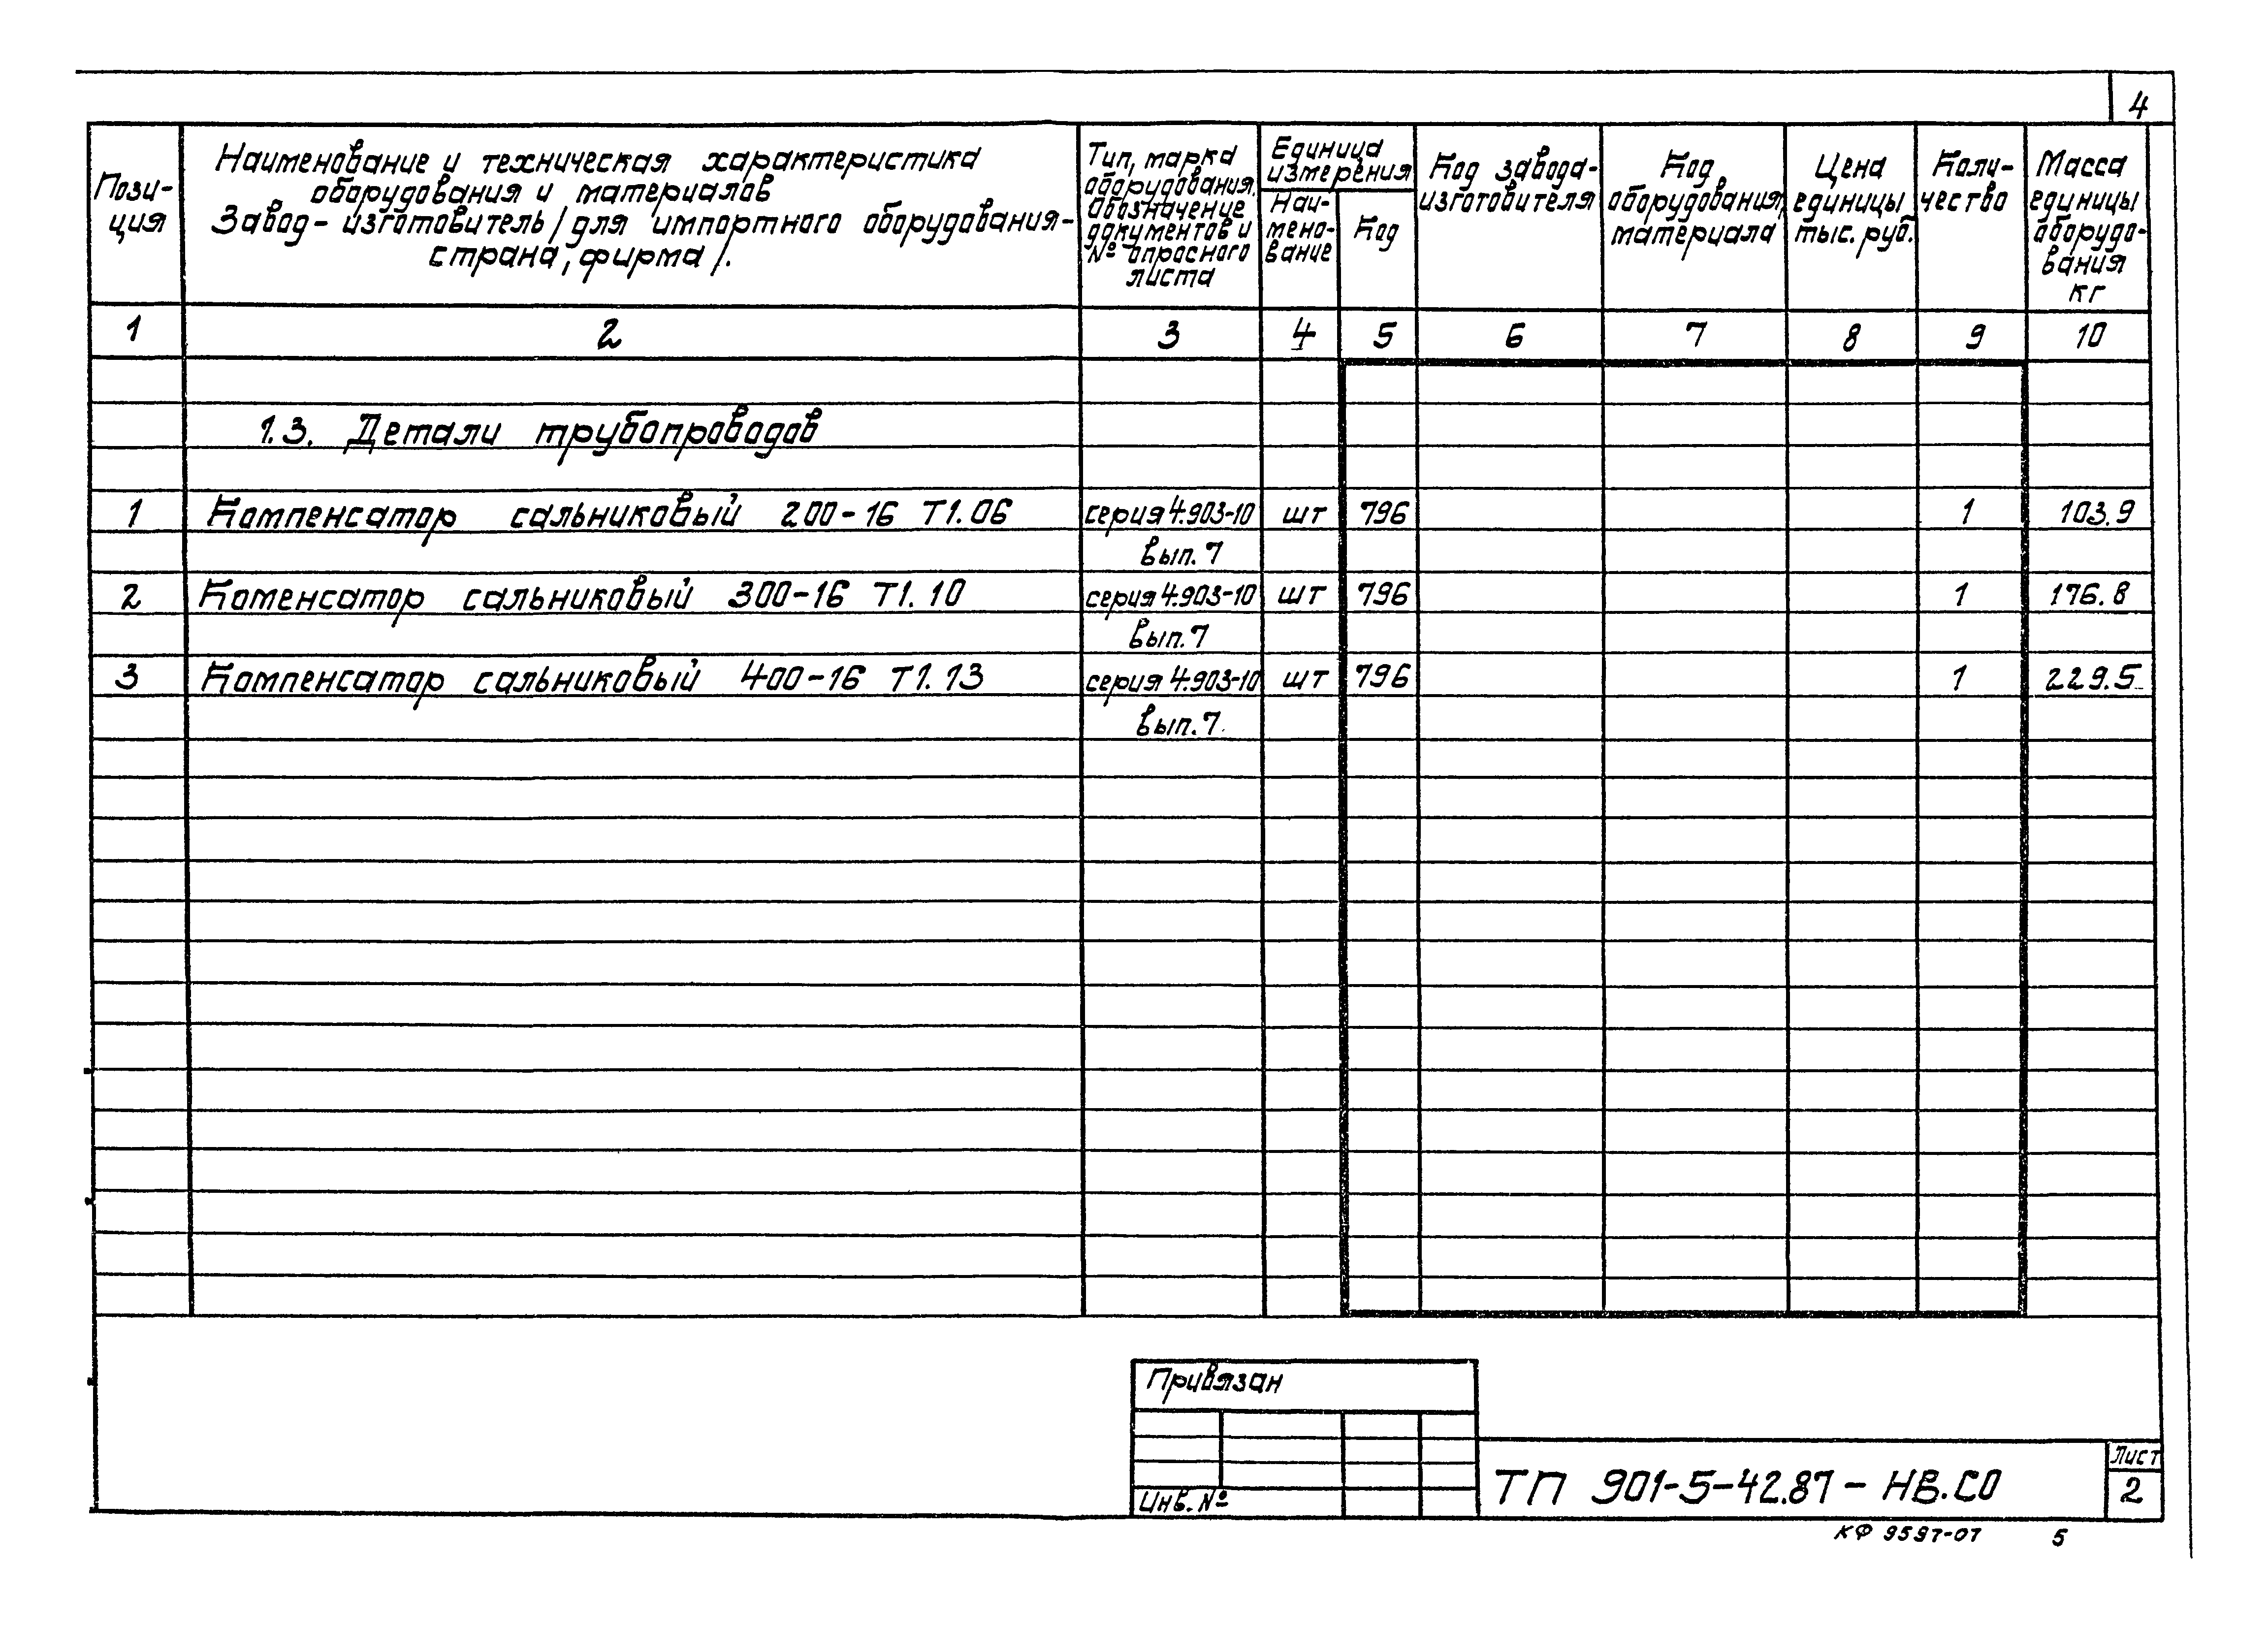 4
Пози-
ция
Наименование и техническая характеристика
оборудования и материалов
Завод-изготовитель/для импортного оборудования-
страна, фирма/.
Тип, марка
оборудования.
Обозначение
документов и
№ опросного
листа
Единица
измерения
Наи-
мено-
вание
Код
Код завода-
изготовителя
Код
оборудования,
материала
Цена
единицы
тыс. руб.
Коли-
чество
Масса
единицы
оборудо-
вания
кг
1 2 3 4 5 6 7 8 9 10
1.3. Детали трубопроводов
1 Компенсатор сальниковый 200-16 Т1.06 серия 4.903-10 шт 796 1 103.9
вып. 7
2 Коменсатор сальниковый 300-16 Т1.10 серия 4.903-10 шт 796 1 176.8
вып. 7
3 Компенсатор сальниковый 400-16 Т1.13 серия 4.903-10 шт 796 1 229.5
вып. 7
Привязан
Инв. №
ТП 901-5-42.87-НВ.СО
Лист
2
КФ 9597-07 5